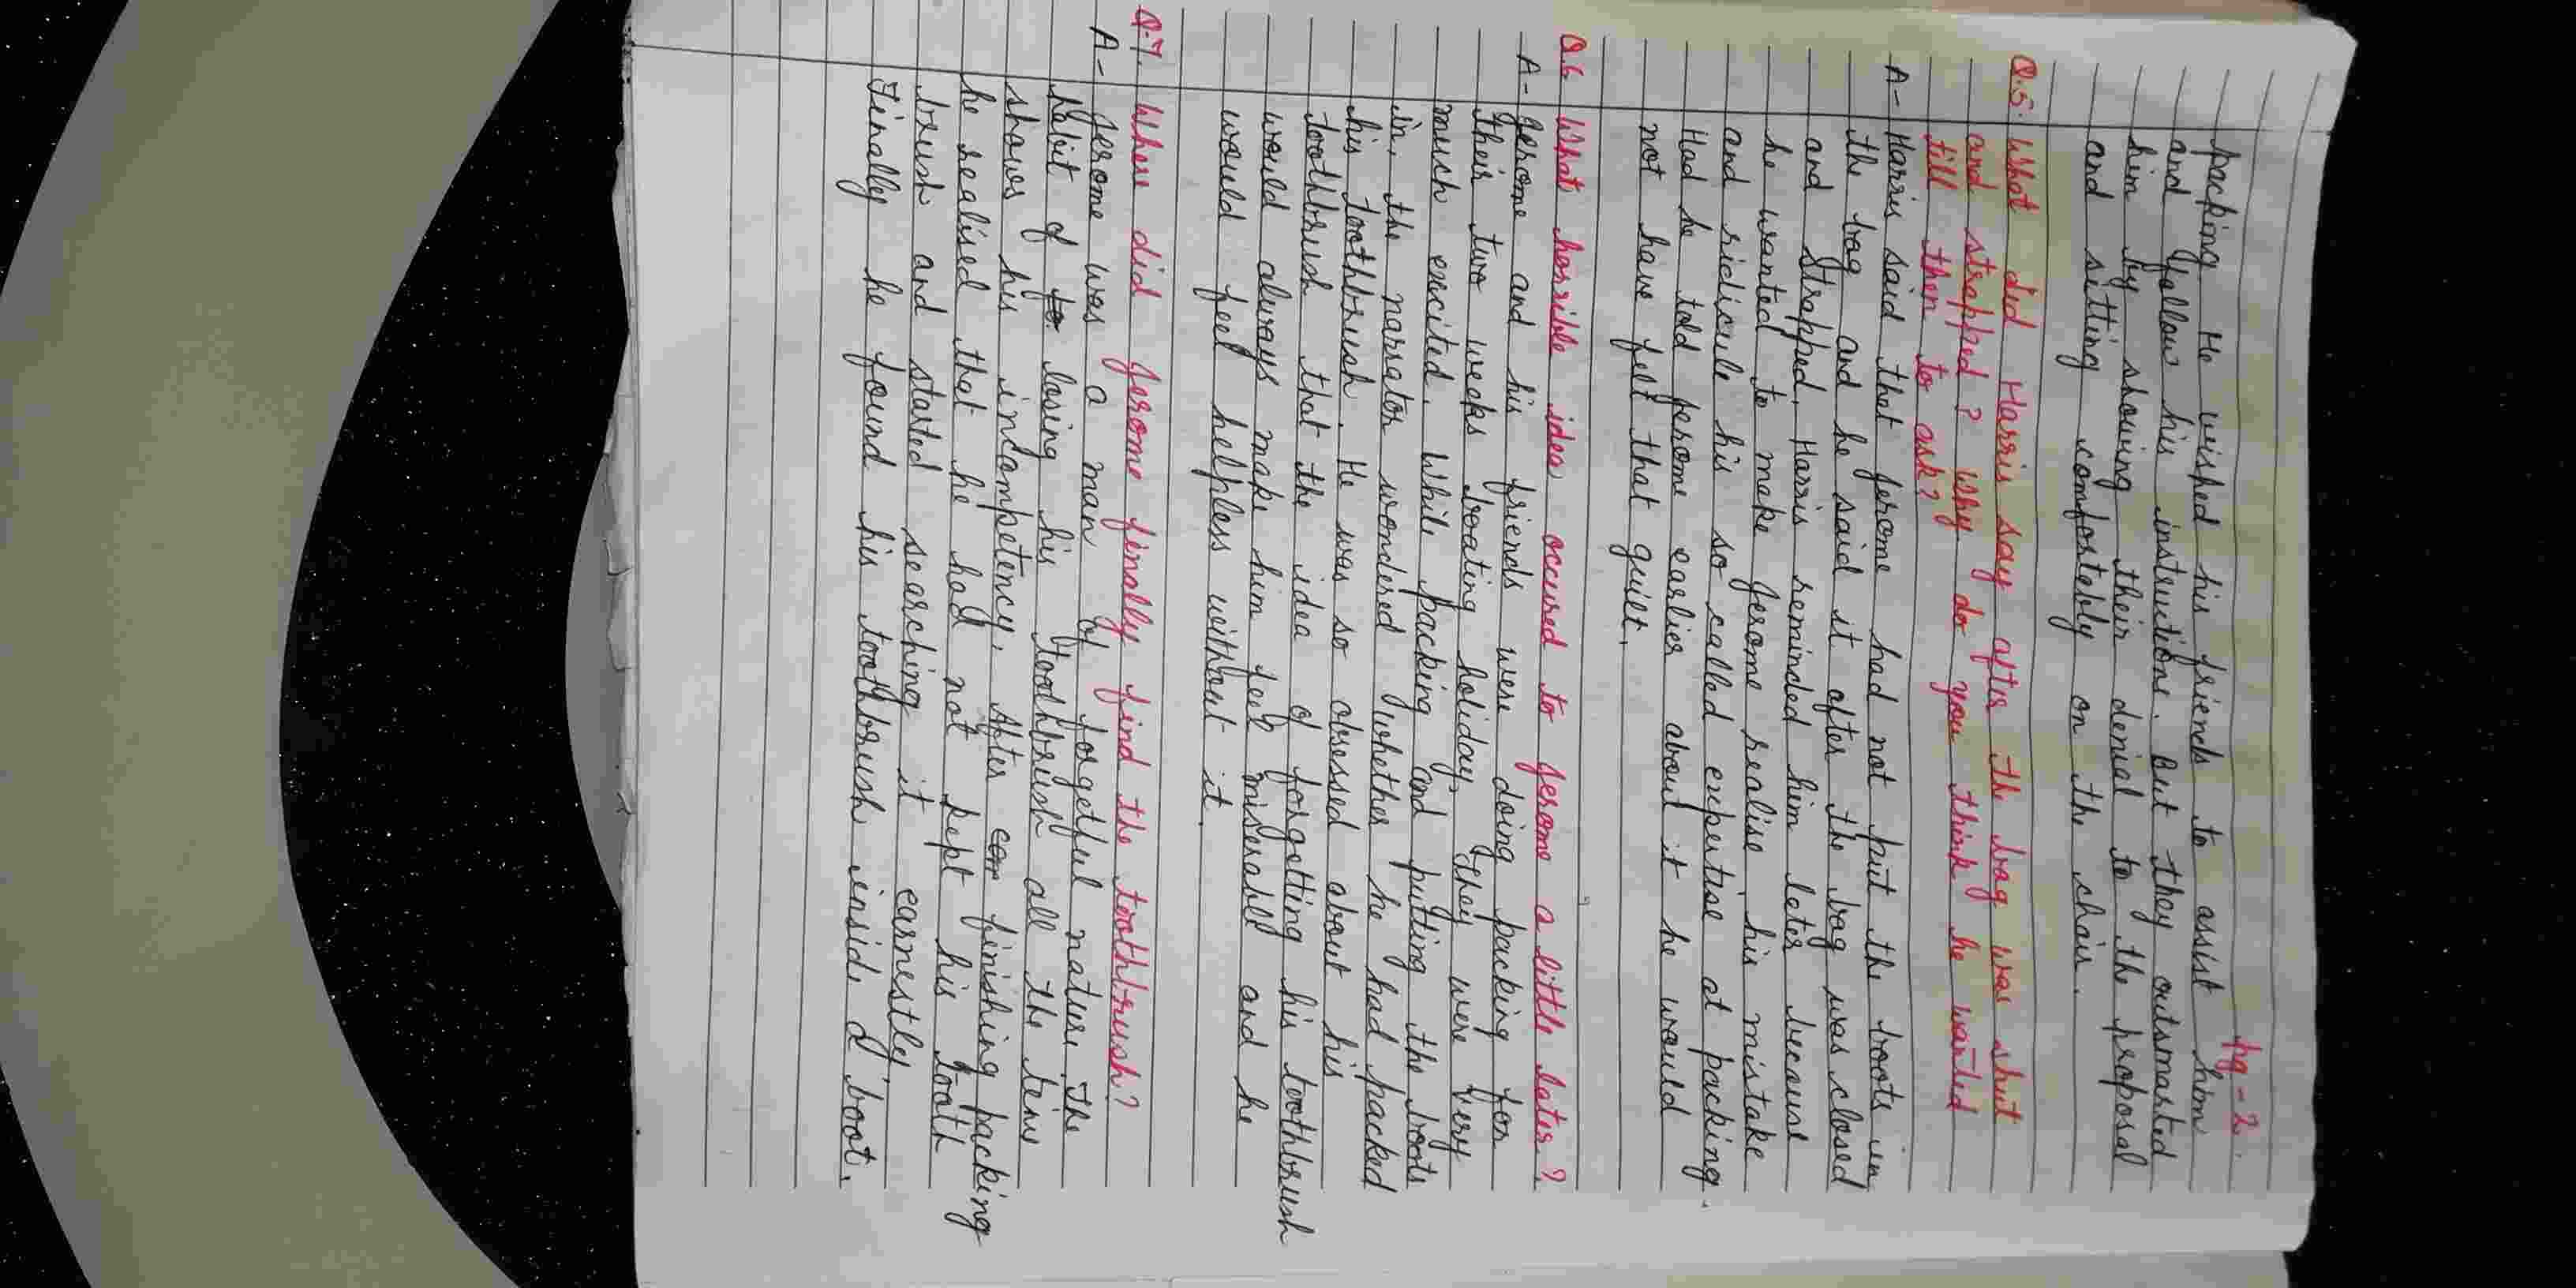 pg - 2.
packing. He wished his friends to assist him
and follow his instructions. But they outsmarted
him by showing their denial to the proposal
and sitting comfortably on the chair.
Q.5. What did Harris say after the bag was shut
and strapped? Why do you think he wanted
till then to ask?
A- Harris said that Jerome had not put the boots in
the bag and he said it after the bag was closed
and strapped. Harris reminded him later because
he wanted to make Jerome realise his mistake
and ridicule his so called expertise at packing.
Had he told Jerome earlier about it he would
not have felt that guilt.
Q.6 What horrible idea occured to Jerome a little later?
A- Jerome and his friends were doing packing for
their two weeks boating holiday. They were very
much excited. While packing and putting the boots
in, the narrator wondered whether he had packed
his toothbrush. He was so obsessed about his
toothbrush that the idea of forgetting his toothbrush
would always make him feel miserable and he
would feel helpless without it.
Q.7. Where did Jerome finally find the toothbrush?
A- Jerome was a man of forgetful nature. The
habit of to losing his toothbrush all the time
shows his incompetency. After com finishing packing
he realised that he had not kept his tooth
brush and started searching it earnestly
Finally he found his toothbrush inside a boot.